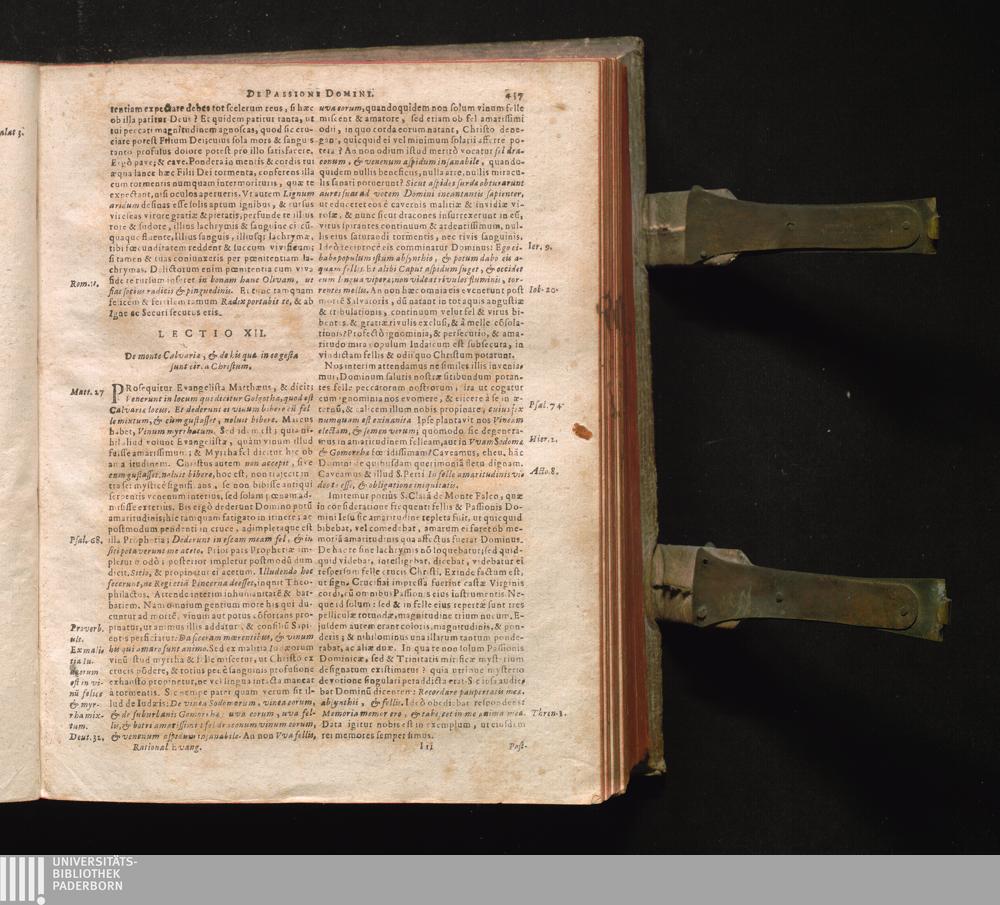 DE PASSIONE DOMINI. 437
tentiam expectare debes tot scelerum reus, si hæc
ob illa patitur Deus? Et quidem patitur tanta, ut
tui peccati magnitudinem agnoscas, quod sic cru-
ciare potest Filium Dei, cuius sola mors & sanguis
tanto profusus dolore potest pro illo satisfacere.
Ergò pave; & cave. Pondera in mentis & cordis tui
æqua lance hæc Filii Dei tormenta, conferens illa
cum tormentis numquam intermorituris, quæ te
expectant, nisi oculos aperueris. Ut autem Lignum
aridum desinas esse solis aptum ignibus, & rursus
virescas virore gratiæ & pietatis, perfunde te illius
rore & sudore, illius lachrymis & sanguine ci cū-
quaque fluente. Illius sanguis, illiusq; lachrymæ,
tibi fœcunditatem reddent & succum vivificum;
si tamen & tuas coniunxeris per pœnitentiam la-
chrymas. Delictorum enim pœnitentia cum viva
fide te rursum inseret in bonam hanc Olivam, ut
fias socius radicis & pinguedinis. Et tunc tamquam
felicem & fertilem ramum Radix portabit te, & ab
Igne ac Securi securus eris.
Rom. 11.
LECTIO XII.
De monte Calvariæ, & de his quæ in eo gesta
sunt circa Christum.
Matt. 27
PRosequitur Evangelista Matthæus, & dicit;
Venerunt in locum qui dicitur Golgotha, quod est
Calvariæ locus. Et dederunt ei vinum bibere cū fel-
le mixtum, & cùm gustasset, noluit bibere. Marcus
habet, Vinum myrrhatum. Sed idem est; quia ni-
hil aliud volunt Evangelistæ, quàm vinum illud
fuisse amarissimum; & Myrrha fel dicitur hîc ob
amaritudinem. Christus autem non accepit, sive
cum gustasset, noluit bibere, hoc est, non traiecit in-
tra se: mysticè significans, se non bibisse antiqui
serpentis venenum interius, sed solam pœnam ad-
misisse exterius. Bis ergò dederunt Domino potū
amaritudinis; hîc tamquam fatigato in itinere; ac
postmodum pendenti in cruce, adimpletaque est
illa Prophetia; Dederunt in escam meam fel, & in
siti potaverunt me aceto. Prior pars Prophetiæ im-
pletur modò; posterior impletur postmodū dum
dicit, Sitio, & propinatur ei acetum. Illudendo hoc
fecerunt, ne Regi etiā Pincerna deesset, inquit Theo-
philactus. Attende interim inhumanitatē & bar-
bariem. Nam omnium gentium more his qui du-
cuntur ad mortē, vinum aut potus cōfortans pro-
pinatur, ut animus illis addatur, & consiliū Sapi-
entis perficiatur: Da siceram mœrentibus, & vinum
his qui amaro sunt animo. Sed ex malitia Iudæorum
vinū istud myrrha & felle miscetur, ut Christo ex
crucis pōdere, & totius penè sanguinis profusione
exhausto propinetur, ne vel lingua intacta maneat
à tormentis. Sic nempe patet quam verum sit il-
lud de Iudæis: De vinea Sodomorum, vinea eorum,
& de suburbanis Gomorrha: uva eorum, uva fel-
lis, & botri amarissimi: fel draconum vinum eorum,
& venenum aspidum insanabile. An non Vva fellis,
Psal. 68.
Proverb.
ult.
Ex malitia Iu-
dæorum
est in vi-
nū felice
& myr-
rha mix-
tum.
Deut. 32.
Rational Evang.
uva eorum, quandoquidem non solum vinum felle
miscent & amarore, sed etiam ob fel amarissimi
odii, in quo corda eorum natant, Christo dene-
gant, quicquid ei vel minimum solatii afferre po-
terat? An non odium istud meritò vocatur fel dra-
conum, & venenum aspidum insanabile, quando-
quidem nullis beneficiis, nulla arte, nullis miracu-
lis sanari potuerunt? Sicut aspides surdæ obturarunt
aures suas ad vocem Domini incantantis sapienter,
ut educeret eos è cavernis malitiæ & invidiæ vi-
rosæ, & nunc sicut dracones insurrexerunt in eū,
virus spirantes continuum & ardentissimum, nul-
lis eius saturandi tormentis, nec rivis sanguinis.
Ideò reciprocè eis comminatur Dominus: Ego ci-
babo populum istum absynthio, & potum dabo eis a-
quam fellis. Et alibi Caput aspidum suget, & occidet
eum lingua viperæ, non videat rivulos fluminis, tor-
rentes mellis. An non hæc omnia eis evenerunt post
mortē Salvatoris, dū natant in tot aquis angustiæ
& tribulationis, continuum velut fel & virus bi-
bentes, & gratiæ rivulis exclusi, & à melle cōsola-
tionis? Profectò ignominia, & persecutio, & ama-
ritudo mira populum Iudaicum est subsecuta, in
vindictam fellis & odii quo Christum potarunt.
Ier. 9.
Iob. 20.
Nos interim attendamus ne similes illis invenia-
mur, Dominum salutis nostræ sitibundum potan-
tes felle peccatorum nostrorum; ita ut cogatur
cum ignominia nos evomere, & eiicere à se in æ-
ternū, & calicem illum nobis propinare, cuius fæx
numquam est exinanita. Ipse plantavit nos Vineam
electam, & semen verum; quomodo sic degenera-
mus in amaritudinem felleam, aut in Vvam Sodomæ
& Gomorrhæ fœtidissimam? Caveamus, eheu, hæc
Domini de quibusdam querimonia fletu dignam.
Caveamus & illud S. Petri In felle amaritudinis vi-
deo te esse, & obligatione iniquitatis.
Psal. 74.
Hier. 2.
Acto. 8.
Imitemur potiùs S. Claiā de Monte Falco, quæ
in consideratione frequenti fellis & Passionis Do-
mini Iesu sic amaritudine repleta fuit, ut quicquid
bibebat, vel comedebat, amarum ei foret ob me-
moriā amaritudinis qua affectus fuerat Dominus.
De hac te sine lachrymis nō loquebatur; sed quid-
quid videbat, intelligebat, dicebat, videbatur ei
respersum felle crucis Christi. Exinde factum est,
ut signa Crucifixi impressa fuerint castæ Virginis
cordi, cū omnibus Passionis eius instrumentis. Ne-
que id solum: sed & in felle eius repertæ sunt tres
pelliculæ rotundæ, magnitudine trium nucum. E-
jusdem autem erant coloris, magnitudinis, & pon-
deris; & nihilominus una illarum tantum ponde-
rabat, ac aliæ duæ. In qua re non solum Passionis
Dominicæ, sed & Trinitatis mirificæ mysterium
designatum existimatur? quia utrique mysterio
devotione singulari per addicta erat. Sæpius audie-
bat Dominū dicentem: Recordare paupertatis meæ,
absynthii, & fellis. Ideò obediebat respondens:
Memoria memor ero, & tabescet in me anima mea.
Data igitur nobis est in exemplum, ut eiusdem
rei memores semper simus.
Thren. 3.
Iii
Post-
alat 3.
UNIVERSITÄTS-
BIBLIOTHEK
PADERBORN